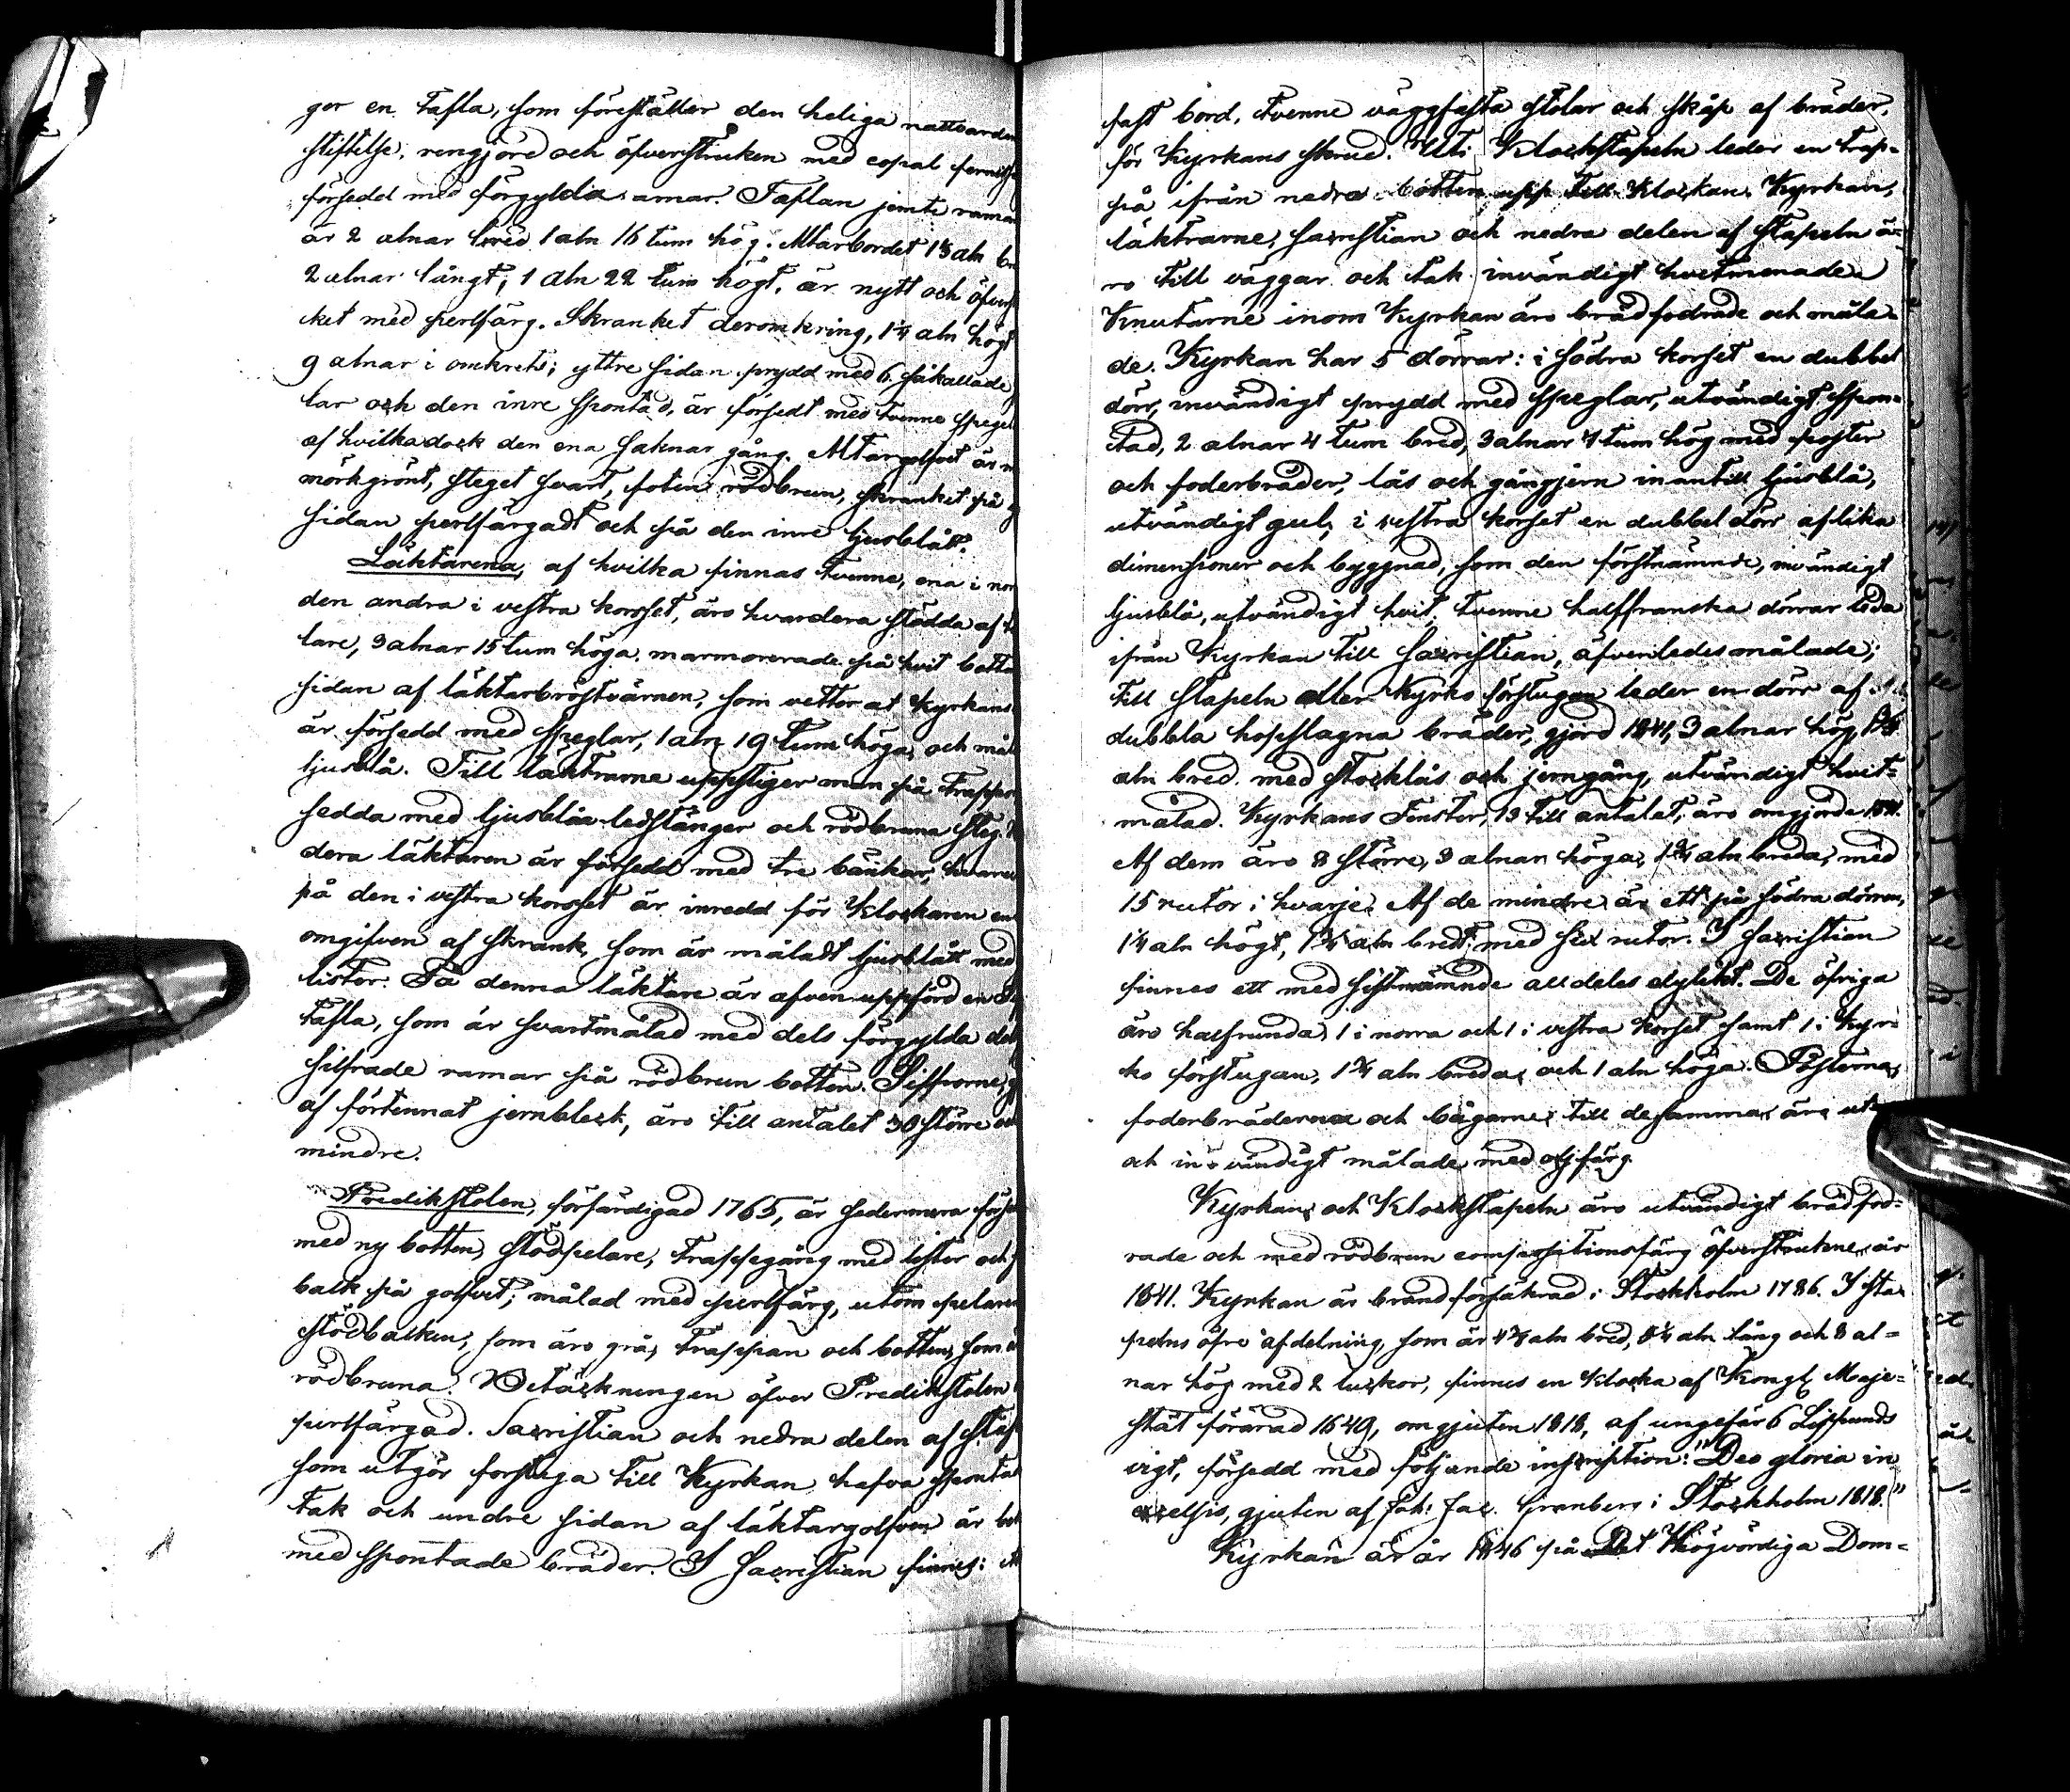 gor en Tafla, som föreställer den heliga nattvarden
stiftelse, rengjord och öfverstruken med copal fernissa
försedd med förgyllda ramar. Taflan jemte ramar
är 2 alnar bred 1 aln 16 tum hög. Altarbordet 1⅓ aln
2 alnar långt, 1 aln 22 tum högt, är nytt och
ket med perlfärg. Skranket deromkring, 1¼ aln högt
9 alnar i omkrets; yttre sidan prydd med 6 såkallade
lar och den inre spontad, är försedt med tvenne
af hvilka dock den ena saknar gång. Altargolfvet är
mörkgrönt, steget svart, foten rödbrun, skranket på
sidan perlfärgadt och på den inre ljusblått.
Läktarena, af hvilka finnas tvenne, ena i
den andra i vestra korset, äro hvardera stödda af
lare, 3 alnar 15 tum höga, marmorerade på hvit
sidan af läktarbröstvärnen, som vetter åt Kyrkans
är försedd med speglar, 1 aln 19 tum höga, och
ljusblå. Till läktrarne uppstiger man på
sedda med ljusblåa ledstänger och rödbruna steg.
dera läktaren är försedd med tre bänkar,
på den i vestra korset är inredd för Klockaren
omgifven af skrank, som är måladt ljusblått med
listor. På denna läktare är äfven uppförd en
Tafla, som är svartmålad med dels förgylda
silfrade ramar på rödbrun botten. Siffrorne,
af förtennat jernbleck, äro till antalet 30 större
mindre.
Predikstolen, förfärdigad 1765, är sedermera
med ny botten, stödpelare, trappegång med lister och
balk på golfvet; målad med perlfärg, utom
stödbalken, som äro grå, trappan och botten, som
rödbruna. Betäckningen öfver Predikstolen
perlfärgad. Sacristian och nedra delen af
som utgör förstuga till Kyrkan hafva
tak och undre sidan af läktargolfven är
med spontade bräder. I Sacristian finnes:
fast bord, tvenne väggfasta stolar och skåp af bräder,
för Kyrkans skrud. Uti Klockstapeln leder en trap-
på ifrån nedra botten upp till Klockan. Kyrkan,
läktrarne, sacristian och nedra delen af stapeln ä-
ro till väggar och tak invändigt hvitmenade.
Knutarne inom Kyrkan äro brädfodrade och måla-
de. Kyrkan har 5 dörrar: i södra korset en dubbel
dörr, invändigt prydd med speglar, utvändigt spon-
tad, 2 alnar 4 tum bred, 3 alnar 4 tum hög med poster
och foderbräder, lås och gångjern inantill ljusblå,
utvändigt gul; i vestra korset en dubbel dörr af lika
dimensioner och byggnad, som den förstnämnde, invändigt
ljusblå, utvändigt hvit; tvenne halffranska dörrar leda
ifrån Kyrkan till Sacristian, äfvenledes målade;
till stapeln eller Kyrko förstugan leder en dörr af
dubbla hopslagna bräder, gjord 1841, 3 alnar hög,
aln bred, med stocklås och jerngång, utvändigt hvit-
målad. Kyrkans Fenster, 13 till antalet, äro omgjorde 1841.
Af dem äro 8 större, 3 alnar höga, 1¾ aln breda, med
15 rutor i hvarje. Af de mindre är ett på södra dörren,
1¼ aln högt, 1¼ aln bredt, med sex rutor. I Sacristian
finnes ett med sistnämnde alldeles dylikt. De öfriga
äro halfrunda, 1 i norra och 1 i vestra korset samt 1 i Kyr-
ko förstugan, 1¾ aln breda, och 1 aln höga. Posterna,
foderbräderna och bågarne till desamma äro
och invändigt målade med oljfärg.
Kyrkan och Klockstapeln äro utvändigt brädfod-
rade och med rödbrun compositionsfärg öfverstrukne, år
1841. Kyrkan är brandförsäkrad i Stockholm 1786. I sta-
pelns öfre afdelning, som är 4¾ aln bred, 5¼ aln lång och 8 al-
nar hög med 2 luckor, finnes en klocka af Kongl. Maje-
stät förärad 1649, omgjuten 1818, af ungefär 6 Lispunds
vigt, försedd med följande inscription: "Deo gloria in
excelsis, gjuten af Joh: Jac. Grönberg i Stockholm 1818."
Kyrkan är år 1846 på Det Högvördiga Dom-